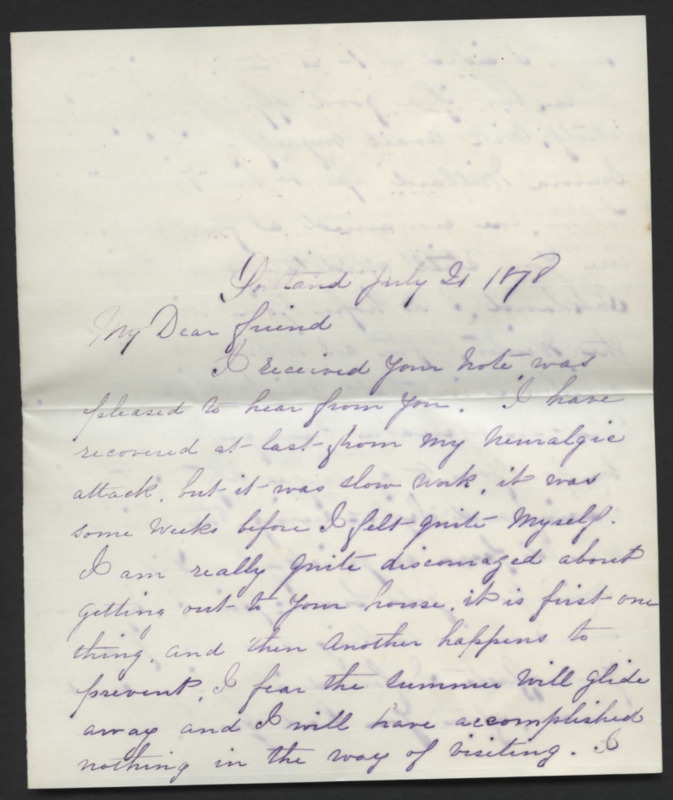 Portland July 21 1878
My Dear friend
I received your note, was
pleased to hear from you. I have
recovered at last from my neuralgic
attack, but it was slow work, it was
some weeks before I felt quite myself.
I am really quite discouraged about
getting out to your house, it is first one
thing, and then another happens to
prevent, I fear the summer will glide
away and I will have accomplished
nothing in the way of visiting. I